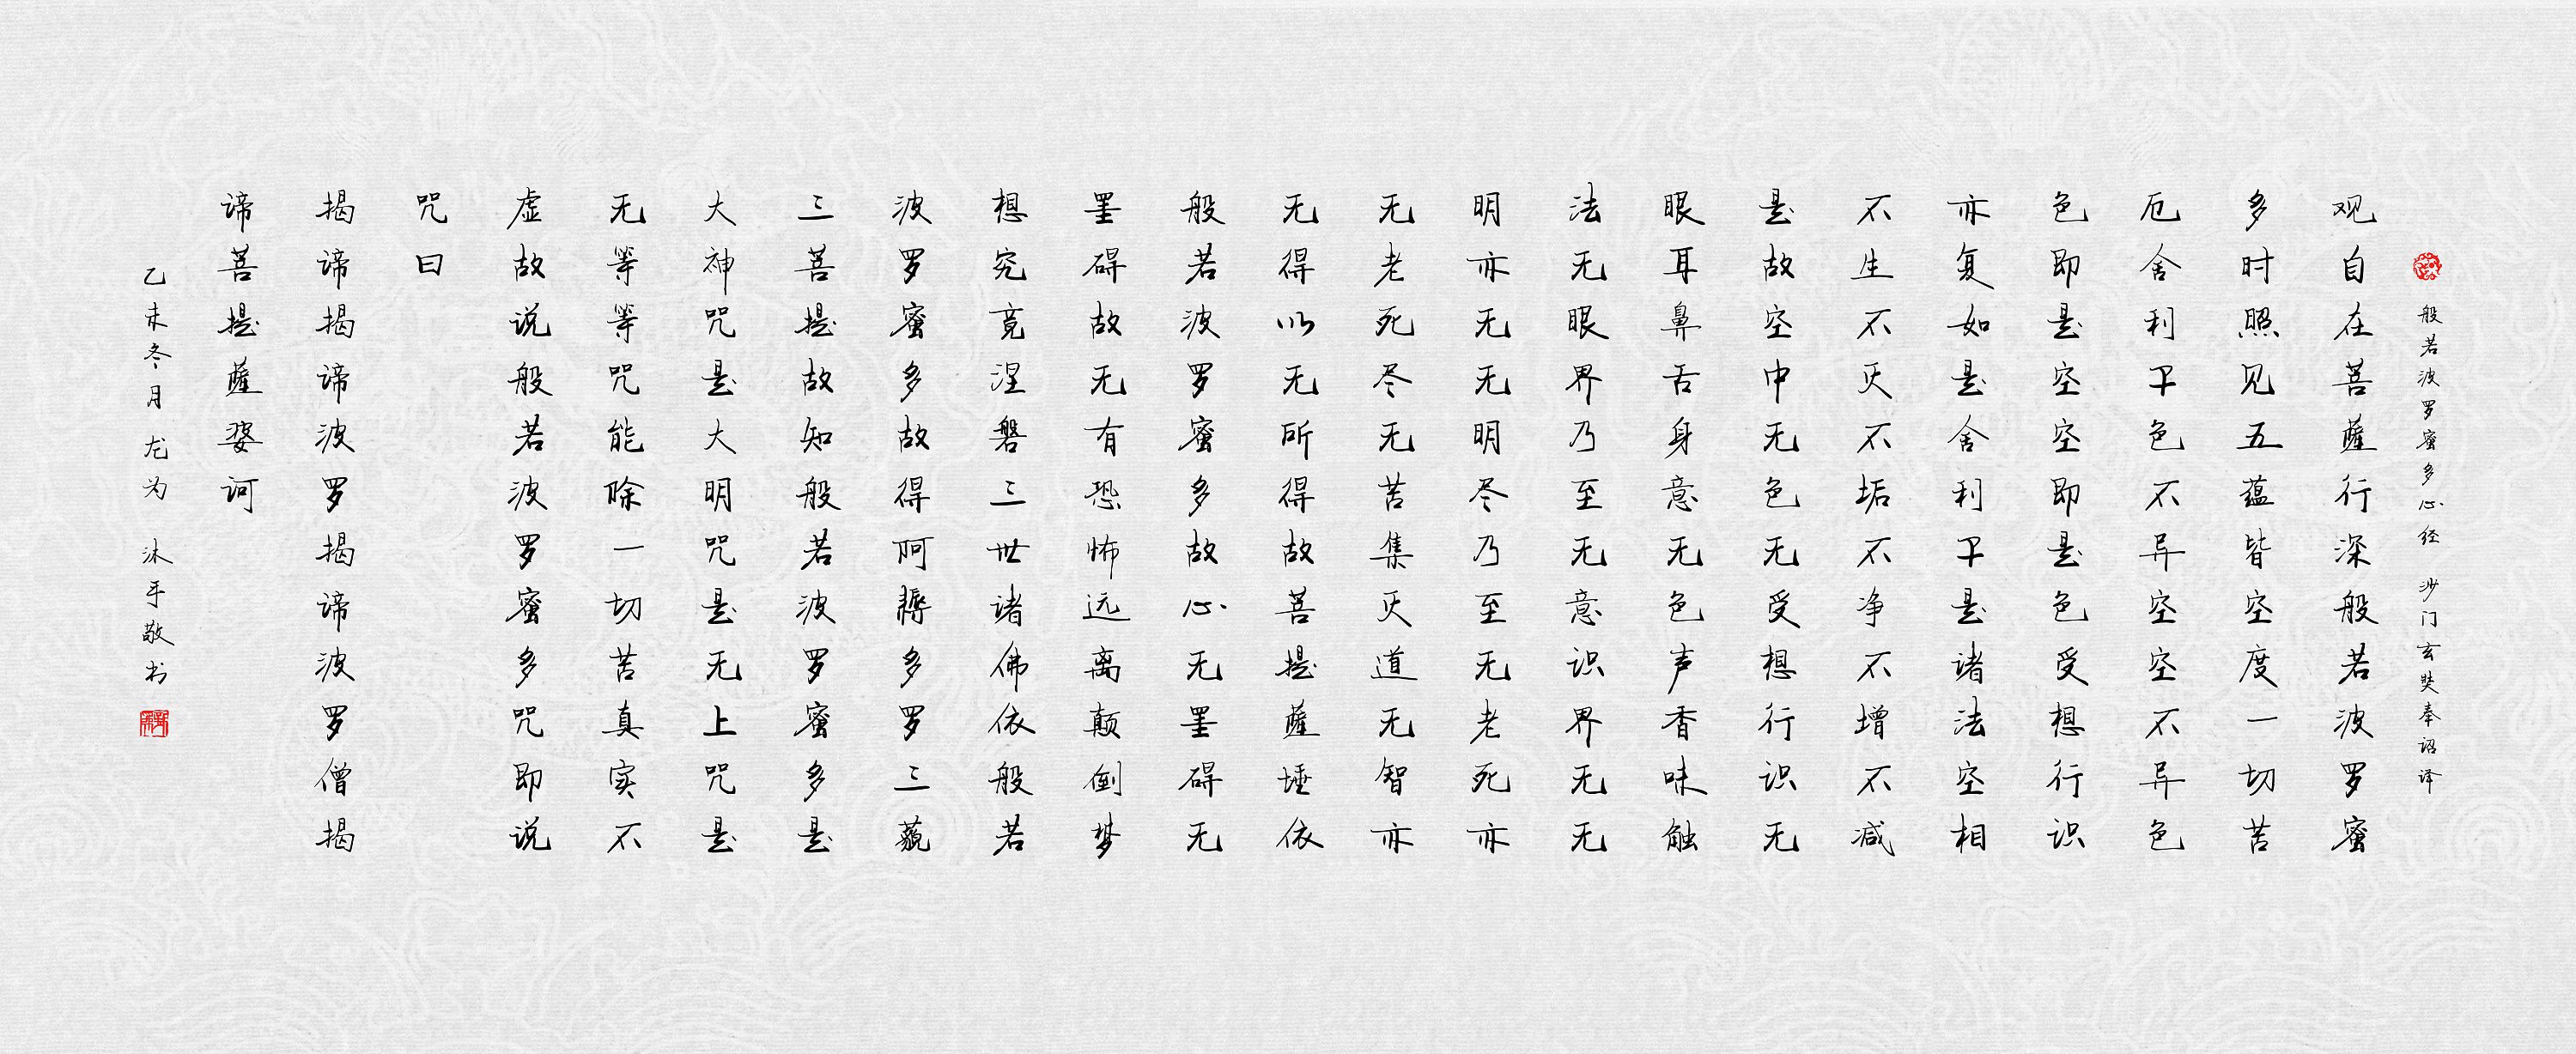 般若波罗蜜多心经 沙门玄奘奉诏译
观自在菩薩行深般若波罗蜜
多时照见五蕴皆空度一切苦
厄舍利子色不异空空不异色
色即是空空即是色受想行识
亦复如是舍利子是诸法空相
不生不灭不垢不净不增不减
是故空中无色无受想行识无
眼耳鼻舌身意无色声香味触
法无眼界乃至无意识界无无
明亦无无明尽乃至无老死亦
无老死尽无苦集灭道无智亦
无得以无所得故菩提薩埵依
般若波罗蜜多故心无罣碍无
罣碍故无有恐怖远离颠倒梦
想究竟涅磐三世诸佛依般若
波罗蜜多故得阿耨多罗三藐
三菩提故知般若波罗蜜多是
大神咒是大明咒是无上咒是
无等等咒能除一切苦真实不
虚故说般若波罗蜜多咒即说
咒曰
揭谛揭谛波罗揭谛波罗僧揭
谛菩提薩婆诃
乙未冬月 龙为 沐手敬书